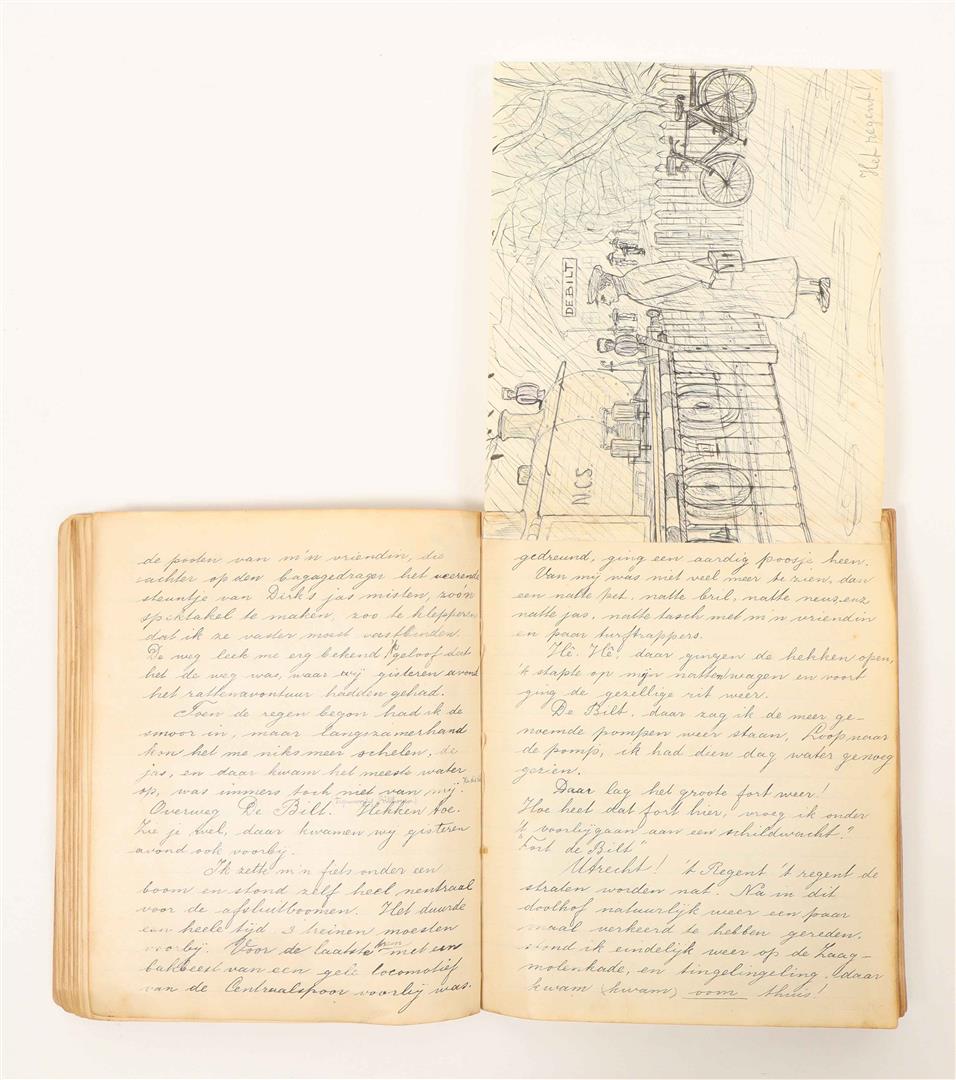 Het regent!
DE BILT
N.C.S.
de pooten van m'n vriendin, die
achter op den bagagedrager het veerende
steuntje van Dirk's jas misten, zóó'n
spiktakel te maken, zoo te klepperen
dat ik ze vaster moest vastbinden.
De weg leek me erg bekend 'k geloof dat
het de weg was, waar wij gisteren avond
het rattenavontuur hadden gehad.
Toen de regen begon had ik de
smoor in, maar langszamerhand
kon het me niks meer schelen, de
jas, en daar kwam het meeste water
op, was immers toch niet van mij!
Overweg De Bilt. Hekken toe.
Zie je wel, daar kwamen wy gisteren
avond ook voorbij.
Ik zette m'n fiets onder een
boom en stond zelf heel neutraal
voor de afsluitboomen. Het duurde
een heele tijd. 3 treinen moesten
voorbij. Voor de laatste trein met een
bakbeest van een gele locomotief
van de Centraalspoor voorbij was.
gedreund, ging een aardig poosje heen.
Van mij was niet veel meer te zien, dan
een natte pet, natte bril, natte neus, enz
natte jas, natte tasch met m'n vriendin
en paar turftrappers.
Hè. Hè, daar gingen de hekken open,
'k stapte op mijn natten wagen en voort
ging de gezellige rit weer.
De Bilt, daar zag ik de meer ge-
noemde pompen weer staan, Loop naar
de pomp, ik had dien dag water genoeg
gezien.
Daar lag het groote fort weer!
Hoe heet dat fort hier, vroeg ik onder
't voorbijgaan aan een schildwacht?
"Fort de Bilt"
Utrecht! 't Regent 't regent de
straten worden nat. Na in dit
doolhof natuurlijk weer een paar
maal verkeerd te hebben gereden,
stond ik eindelijk weer op de Zaag-
molenkade, en tingelingeling, daar
kwam (kwam) oom thuis!